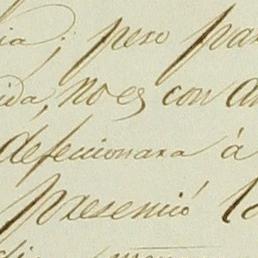 ia; pero pa
ida, no es con a
defeccionara á
presenció l